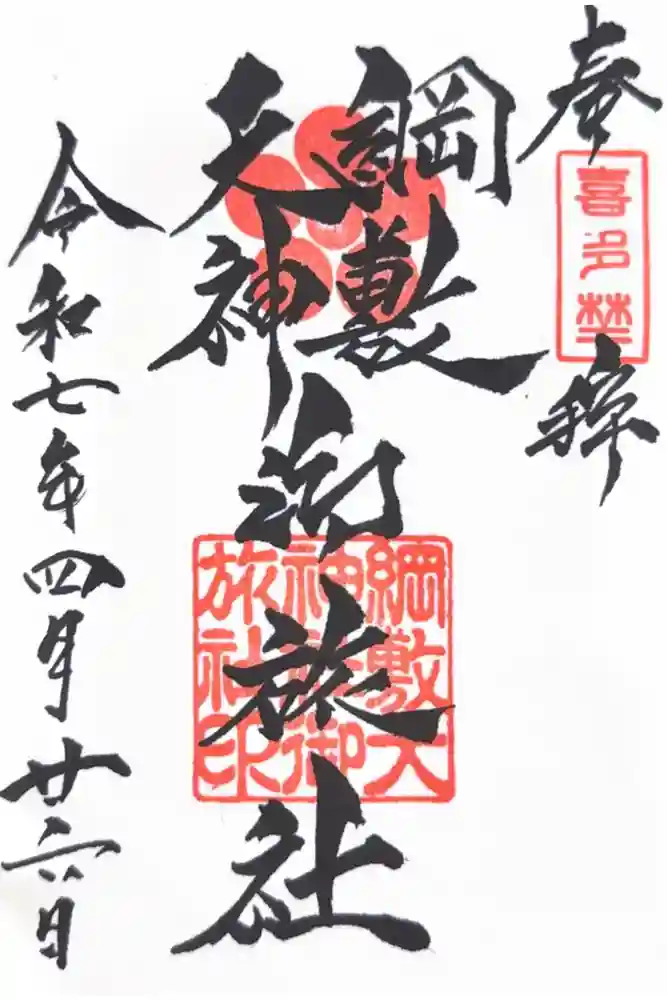 奉拝
喜多埜
綱敷
天神
御旅社
綱敷天
神社御
旅社印
令和七年四月廿六日